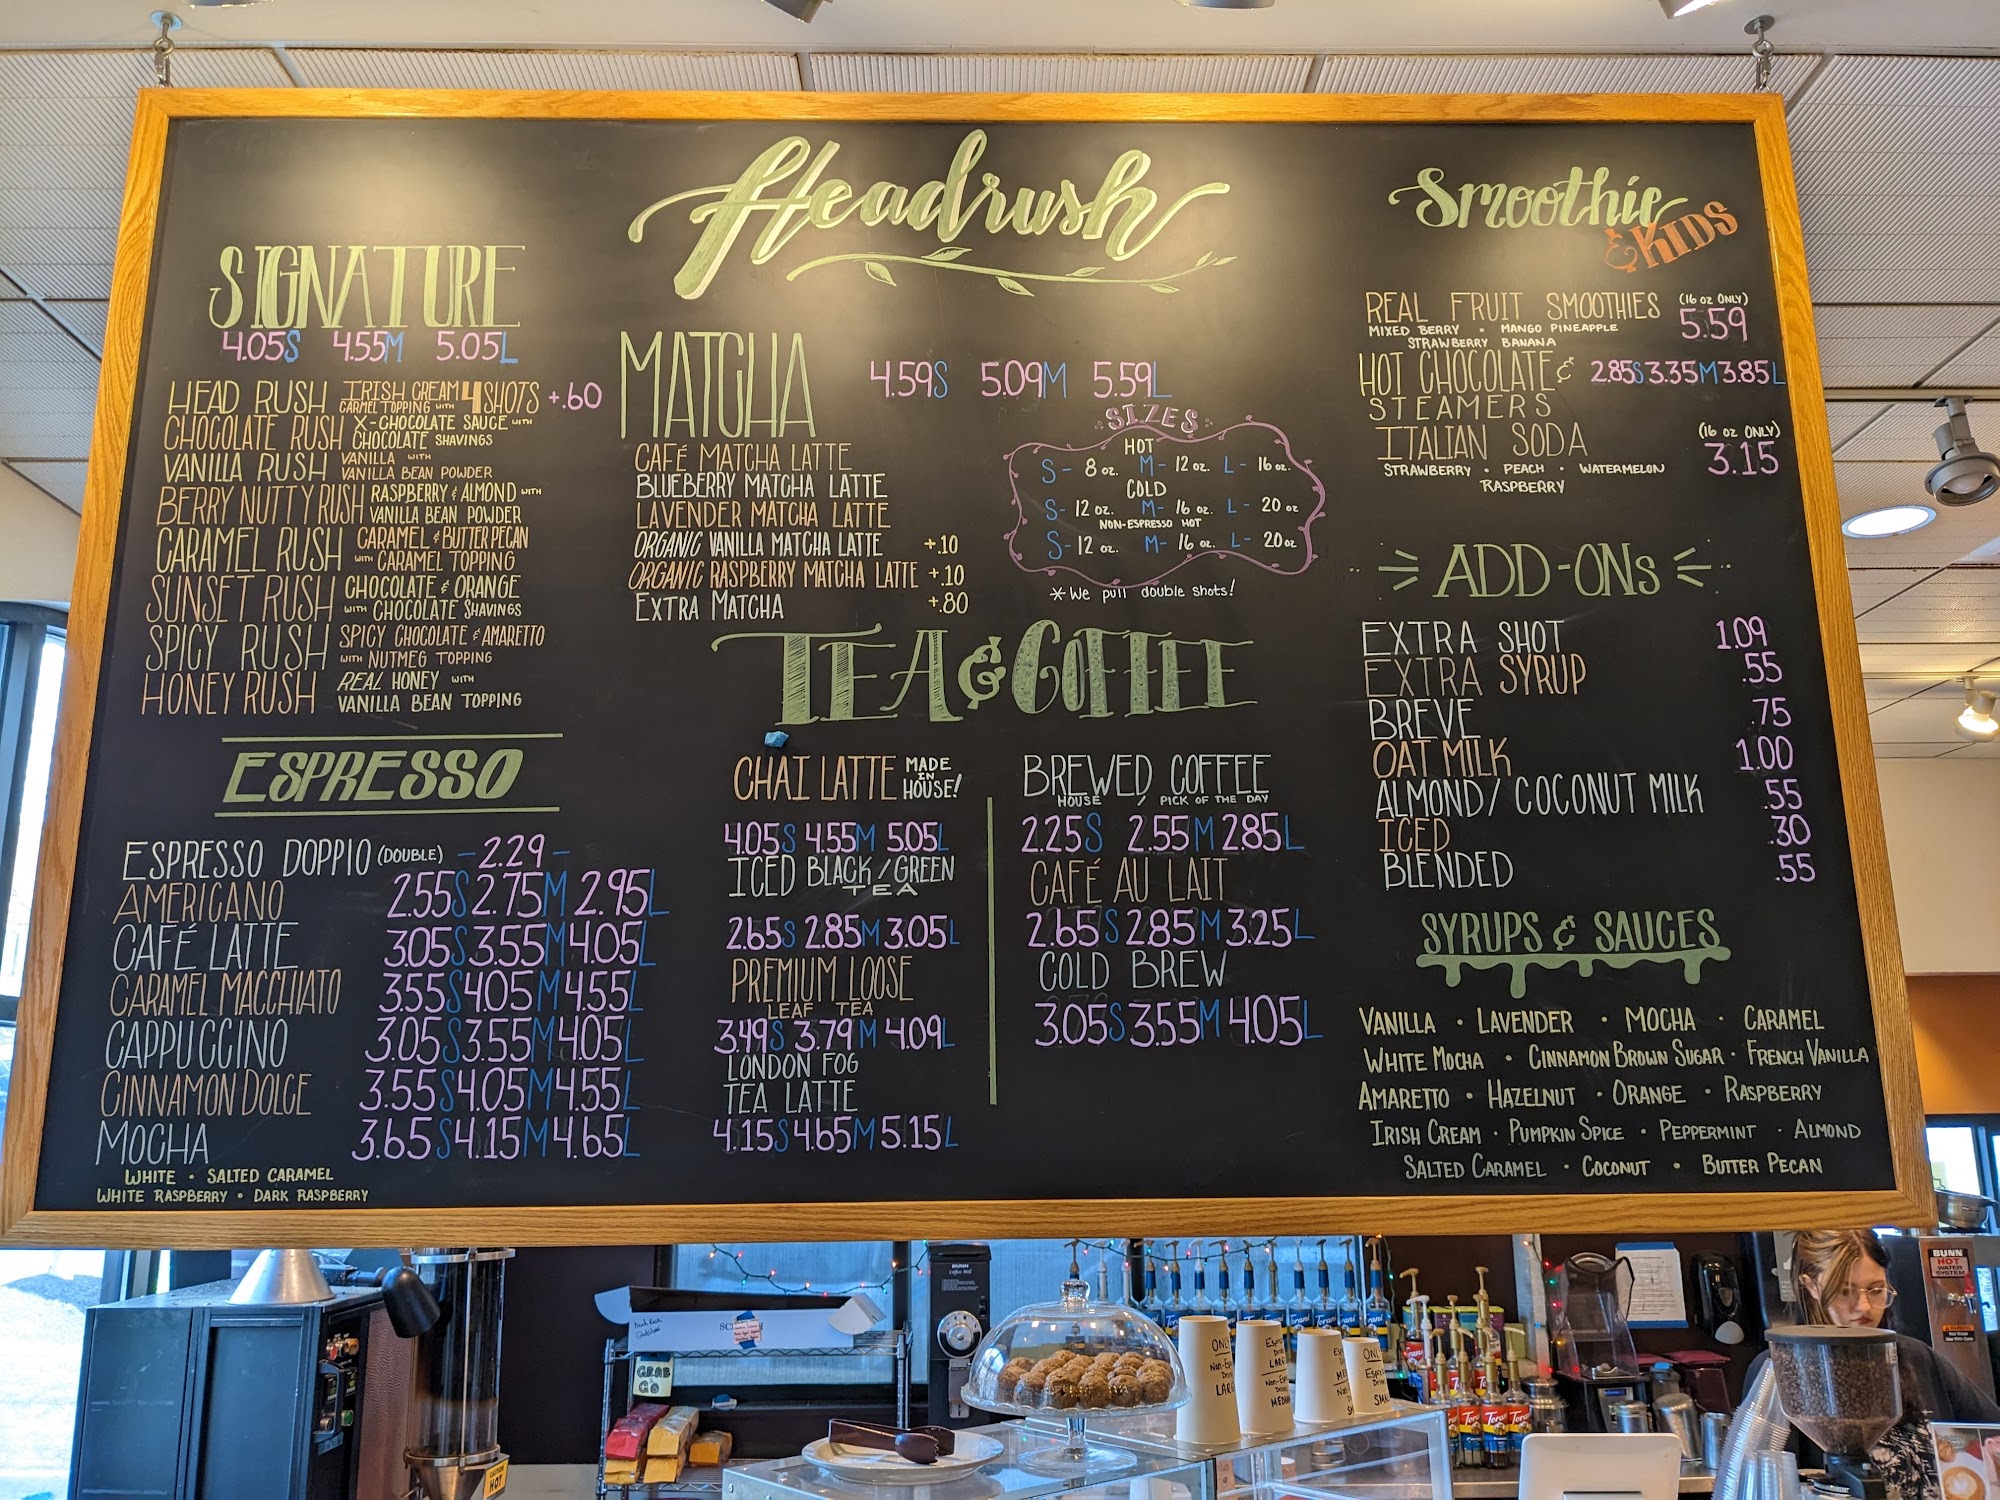 Headrush
SIGNATURE
4.05S 4.55M 5.05L
HEAD RUSH IRISH CREAM 4 SHOTS +.60
CARMEL TOPPING WITH
CHOCOLATE RUSH X-CHOCOLATE SAUCE WITH
CHOCOLATE SHAVINGS
VANILLA RUSH VANILLA WITH
VANILLA BEAN POWDER
BERRY NUTTY RUSH RASPBERRY & ALMOND WITH
VANILLA BEAN POWDER
CARAMEL RUSH CARAMEL & BUTTER PECAN
WITH CARAMEL TOPPING
SUNSET RUSH CHOCOLATE & ORANGE
WITH CHOCOLATE SHAVINGS
SPICY RUSH SPICY CHOCOLATE & AMARETTO
WITH NUTMEG TOPPING
HONEY RUSH REAL HONEY WITH
VANILLA BEAN TOPPING
ESPRESSO
ESPRESSO DOPPIO (DOUBLE) -2.29-
AMERICANO 2.55S 2.75M 2.95L
CAFÉ LATTE 3.05S 3.55M 4.05L
CARAMEL MACCHIATO 3.55S 4.05M 4.55L
CAPPUCCINO 3.05S 3.55M 4.05L
CINNAMON DOLCE 3.55S 4.05M 4.55L
MOCHA 3.65S 4.15M 4.65L
WHITE • SALTED CARAMEL
WHITE RASPBERRY • DARK RASPBERRY
MATCHA 4.59S 5.09M 5.59L
CAFÉ MATCHA LATTE
BLUEBERRY MATCHA LATTE
LAVENDER MATCHA LATTE
ORGANIC VANILLA MATCHA LATTE +.10
ORGANIC RASPBERRY MATCHA LATTE +.10
EXTRA MATCHA +.80
SIZES
HOT
S- 8 oz. M- 12 oz. L- 16 oz.
COLD
S- 12 oz. M- 16 oz. L- 20 oz
NON-ESPRESSO HOT
S- 12 oz. M- 16 oz. L- 20 oz
*We pull double shots!
TEA & COFFEE
CHAI LATTE MADE IN HOUSE!
4.05S 4.55M 5.05L
ICED BLACK/GREEN
TEA
2.65S 2.85M 3.05L
PREMIUM LOOSE
LEAF TEA
3.49S 3.79M 4.09L
LONDON FOG
TEA LATTE
4.15S 4.65M 5.15L
BREWED COFFEE
HOUSE / PICK OF THE DAY
2.25S 2.55M 2.85L
CAFÉ AU LAIT
2.65S 2.85M 3.25L
COLD BREW
3.05S 3.55M 4.05L
Smoothie
& KIDS
REAL FRUIT SMOOTHIES (16 oz ONLY)
5.59
MIXED BERRY • MANGO PINEAPPLE
STRAWBERRY BANANA
HOT CHOCOLATE & 2.85S 3.35M 3.85L
STEAMERS
ITALIAN SODA (16 oz ONLY)
3.15
STRAWBERRY • PEACH • WATERMELON
RASPBERRY
ADD-ONs
EXTRA SHOT 1.09
EXTRA SYRUP .55
BREVE .75
OAT MILK 1.00
ALMOND/COCONUT MILK .55
ICED .30
BLENDED .55
SYRUPS & SAUCES
VANILLA • LAVENDER • MOCHA • CARAMEL
WHITE MOCHA • CINNAMON BROWN SUGAR • FRENCH VANILLA
AMARETTO • HAZELNUT • ORANGE • RASPBERRY
IRISH CREAM • PUMPKIN SPICE • PEPPERMINT • ALMOND
SALTED CARAMEL • COCONUT • BUTTER PECAN
GRAB
GO
BUNN
BUNN
HOT
WATER
SYSTEM
Torani
HOT